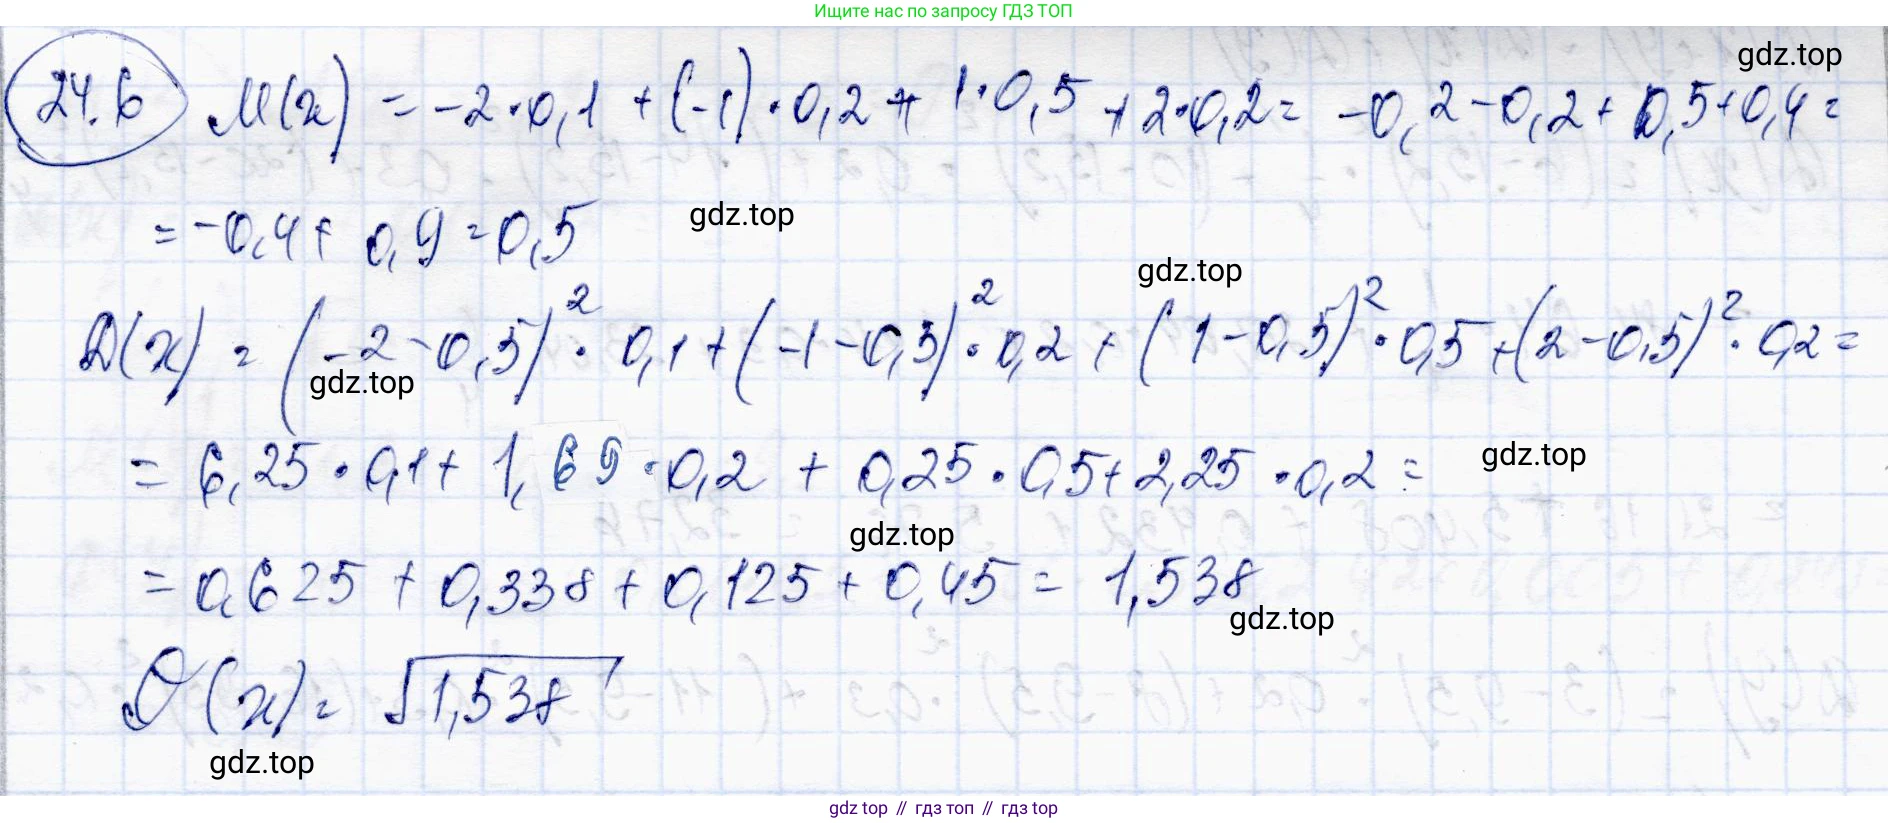 Ищите нас по запросу ГДЗ ТОП
gdz.top
24.6 M(x) = -2·0,1 + (-1)·0,2 + 1·0,5 + 2·0,2 = -0,2-0,2+0,5+0,4=
= -0,4+0,9=0,5
gdz.top
gdz.top
D(x) = (-2-0,5)²·0,1+(-1-0,5)²·0,2+(1-0,5)²·0,5+(2-0,5)²·0,2=
gdz.top
= 6,25·0,1+1,69·0,2+0,25·0,5+2,25·0,2=
gdz.top
gdz.top
= 0,625+0,338+0,125+0,45=1,538
gdz.top
σ(x)= √1,538
gdz.top
gdz top // гдз топ // гдз top